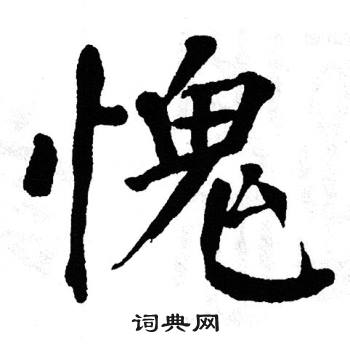 愧
词典网